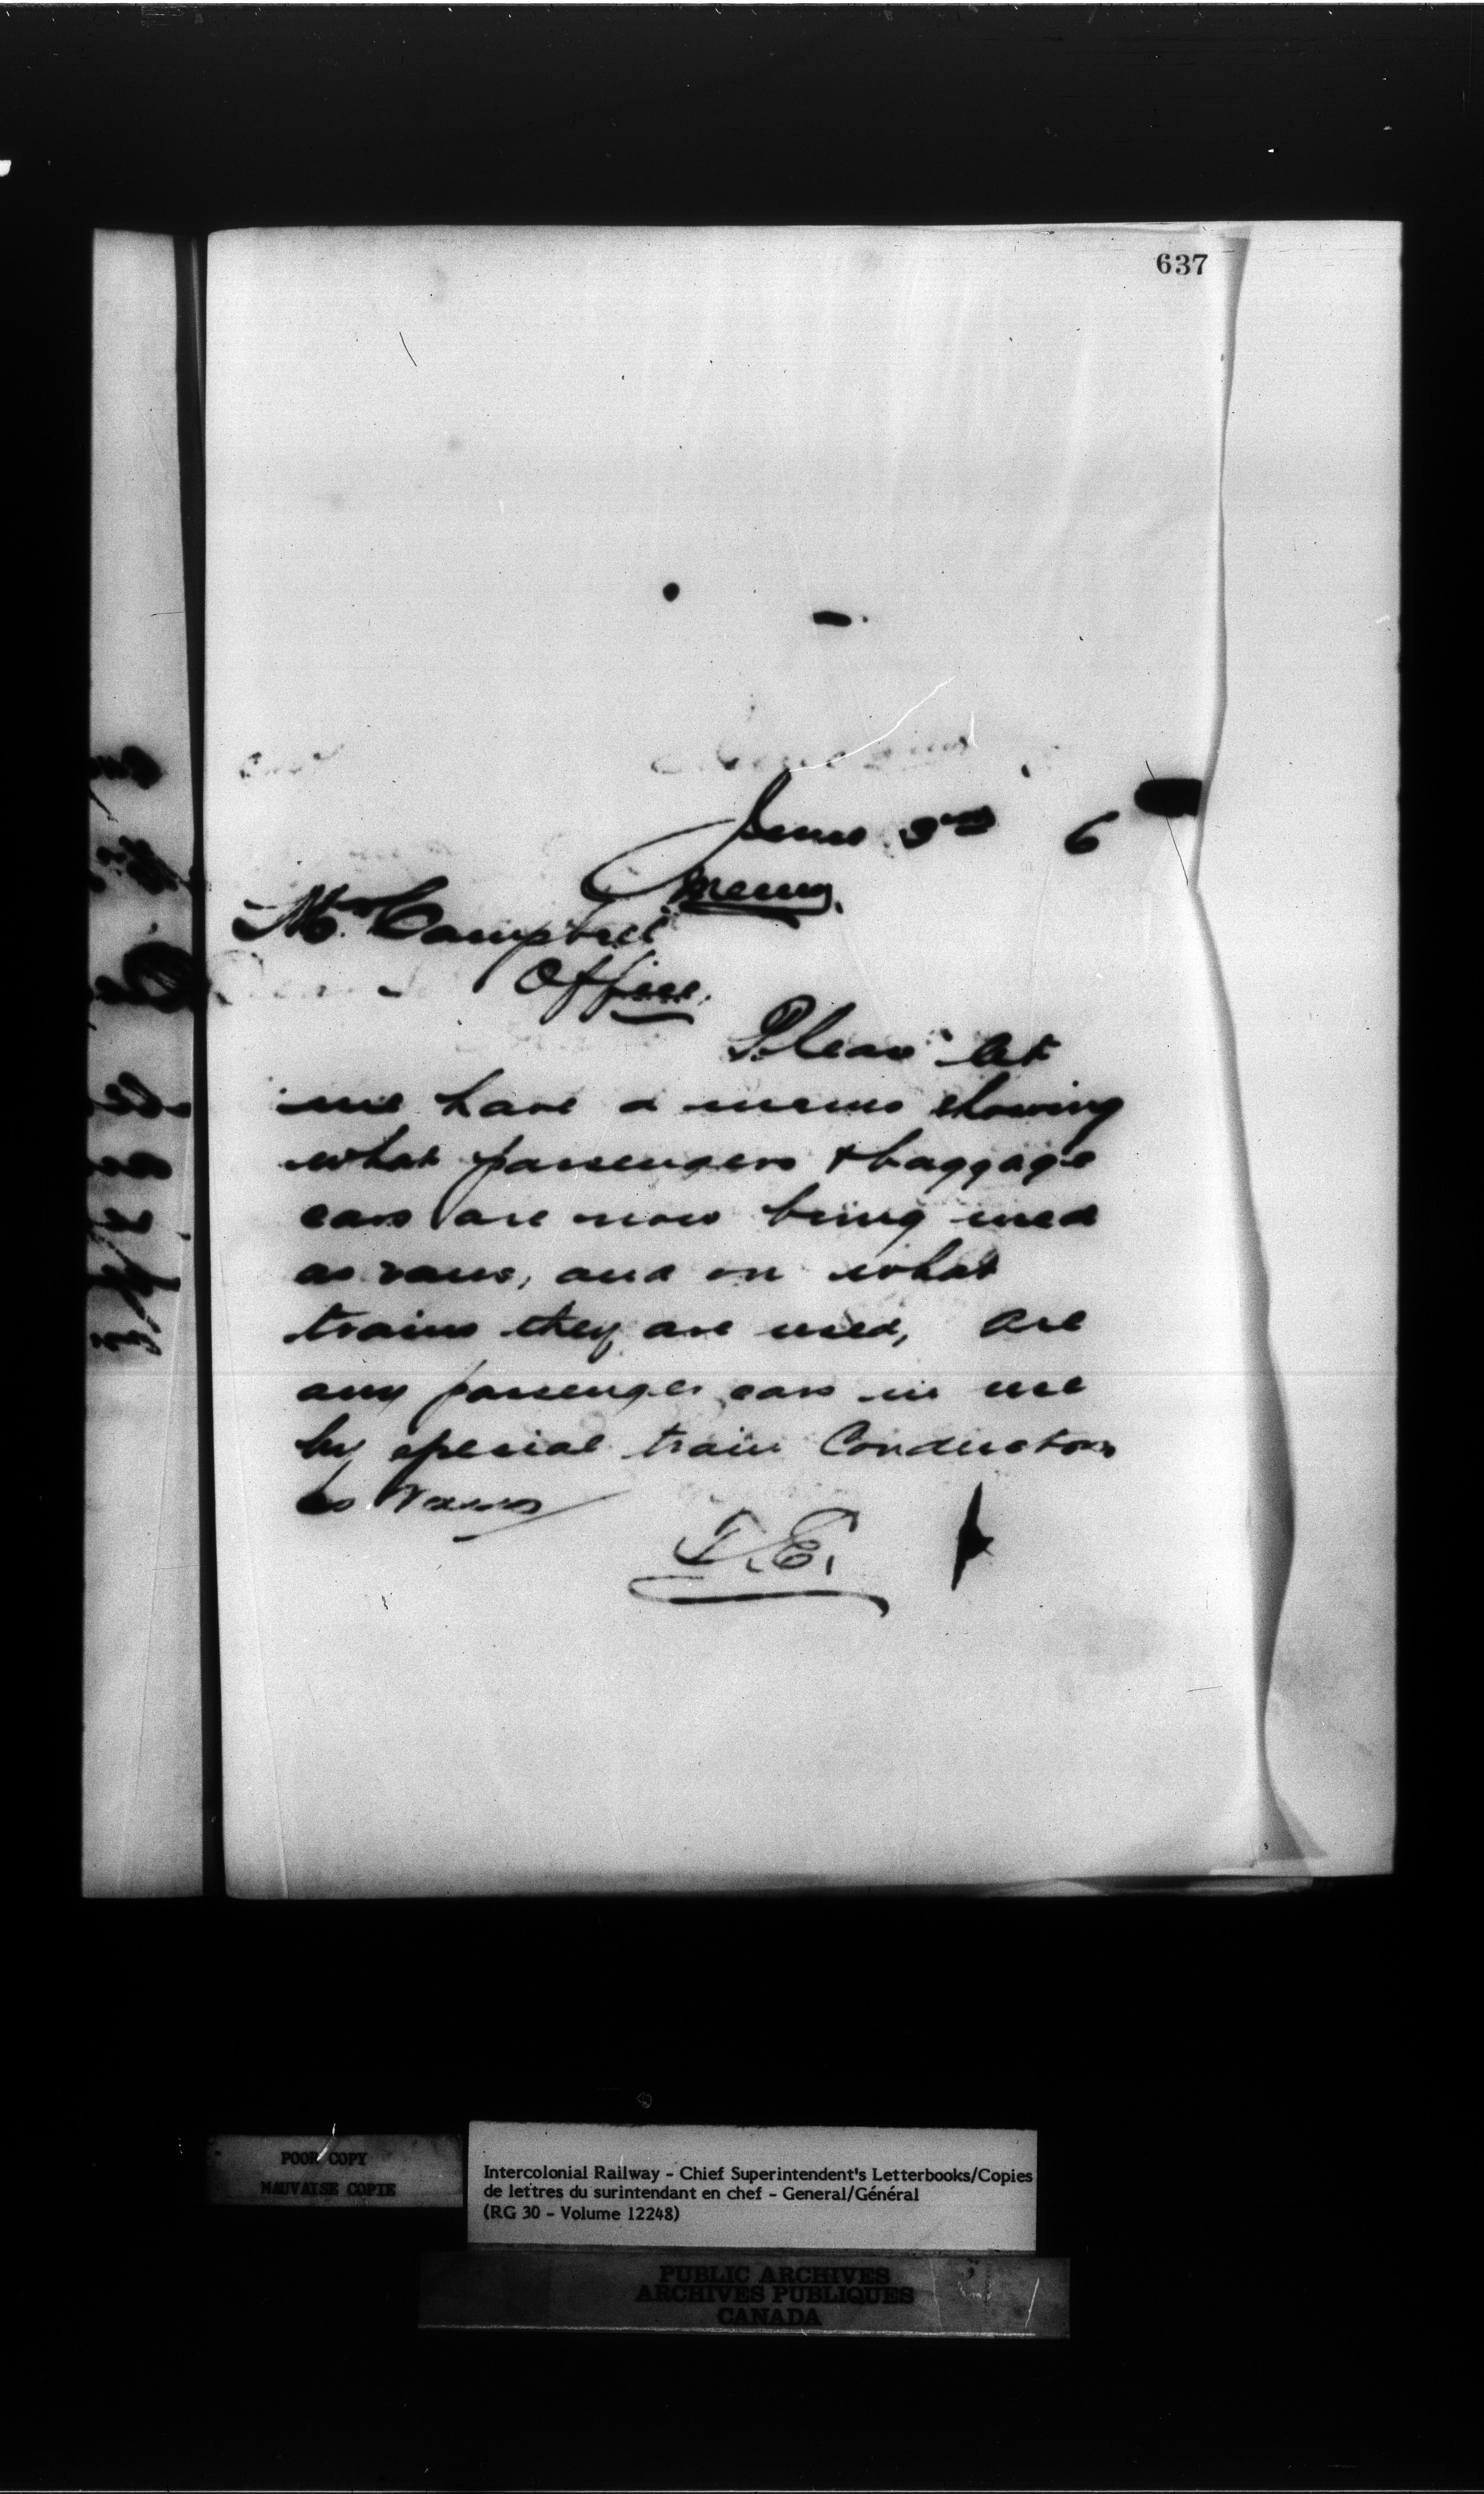 637
June 3rd 6
Memo.
Mr. Campbell
Office.
Please let
me have a memo showing
what passengers & baggage
cars are now being used
as vans, and on what
trains they are used, are
any passenger cars in use
by special train Conductors
as Vans
POOR COPY
MAUVAISE COPIE
Intercolonial Railway - Chief Superintendent's Letterbooks/Copies
de lettres du surintendant en chef - General/Général
(RG 30 - Volume 12248)
PUBLIC ARCHIVES
ARCHIVES PUBLIQUES
CANADA